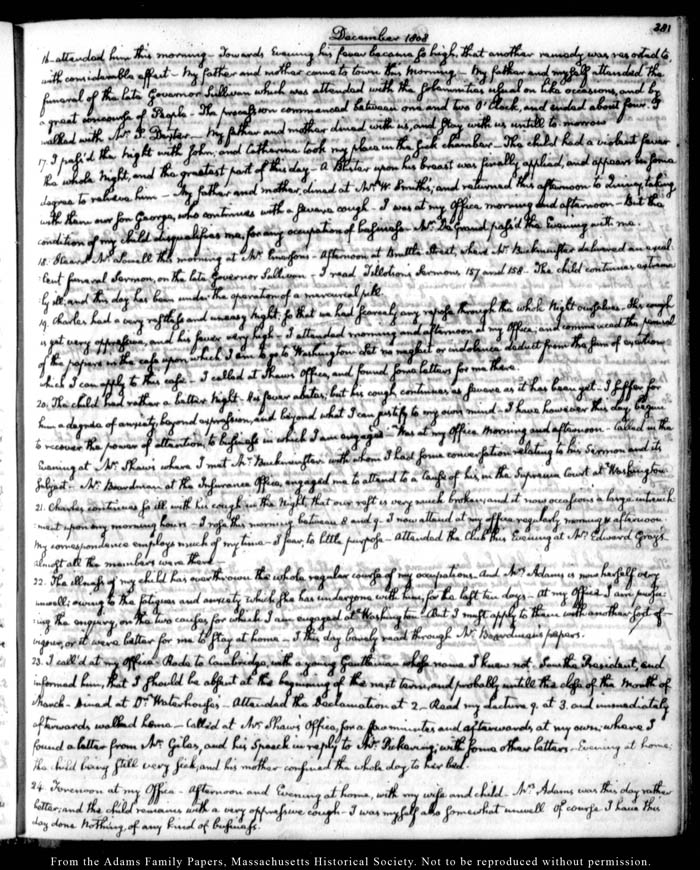 December 1808
281
16. attended him this morning. Towards Evening his fever became so high, that another remedy was resorted to
with considerable effect. My father and mother came to town this Morning. My father and myself attended the
funeral of the late Governor Sullivan which was attended with the solemnities usual on like occasions, and by
a great concourse of People. The procession commenced between one and two O'Clock, and ended about four. I
walked with Mr. Dexter. My father and mother dined with us, and stay with us untill to morrow
17. I pass'd the Night with John, and Catherine took my place in the sick chamber. The child had a violent fever
the whole Night, and the greatest part of this day. A Blister upon his breast was finally applied, and appears in some
degree to relieve him. My father and mother, dined at Mr. W. Smith's, and returned this afternoon to Quincy, taking
with them our son George, who continues with a severe cough. I was at my Office morning and afternoon. But the
condition of my child disqualifies me, for any occupation of business. Mr. De Grand pass'd the Evening with me.
18. Heard Mr. Lowell this morning at Mr. Emerson's. Afternoon at Brattle Street, where Mr. Buckminster delivered an excel-
lent funeral Sermon, on the late Governor Sullivan. I read Tillotson's Sermons, 157 and 158. The child continues extreme-
ly ill, and this day has been under the operation of a mercurial pill.
19. Charles had a very restless and uneasy Night; so that we had scarcely any repose through the whole Night ourselves. His cough
is yet very oppressive, and his fever very high. I attended morning and afternoon at my Office; and commenced the perusal
of the papers in the case upon which I am to go to Washington. Let no neglect or indolence deduct from the sum of exertion
which I can apply to this case. I called at Shaw's Office, and found some letters for me there.
20. The child had rather a better Night. His fever abates, but his cough continues as severe as it has been yet. I suffer for
him a degree of anxiety, beyond expression, and beyond what I can justify to my own mind. I have however this day begun
to recover the power of attention, to business in which I am engaged. Was at my Office Morning and afternoon. Called in the
Evening at Mr. Shaw's where I met Mr. Buckminster with whom I had some conversation relating to his Sermon and its
subject. Mr. Boardman, at the Insurance Office, engaged me to attend to a cause of his, in the Supreme Court at Washington.
21. Charles continues so ill with his cough in the Night, that our rest is very much broken; and it now occasions a large intrench-
ment upon my morning hours. I rose this morning between 8 and 9. I now attend at my office regularly morning & afternoon
My correspondence employs much of my time. I fear, to little purpose. Attended the Club this Evening at Mr. Edward Gray's
almost all the members were there.
22. The illness of my child has overthrown the whole regular course of my occupations. And Mrs. Adams is now herself very
unwell; owing to the fatigues and anxiety which she has undergone with him, for the last ten days. At my Office I am pursu-
ing the enquiry, on the two causes for which I am engaged at Washington. But I must apply to them with another sort of
vigour, or it were better for me to stay at home. I this day barely read through Mr. Boardman's papers.
23. I call'd at my Office. Rode to Cambridge, with a young Gentleman whose name I knew not. Saw the President, and
informed him, that I should be absent at the beginning of the next term, and probably untill the close of the Month of
March. Dined at Dr. Waterhouse's. Attended the Declamation at 2. Read my lecture 9. at 3. and immediately
afterwards walked home. Called at Mr. Shaw's Office, for a few minutes and afterwards at my own; where I
found a letter from Mr. Giles, and his Speech in reply to Mr. Pickering, with some other letters. Evening at home,
the child being still very sick, and his mother confined the whole day to her bed.
24. Forenoon at my Office. Afternoon and Evening at home, with my wife and child. Mrs. Adams was this day rather
better, and the child remains with a very oppressive cough. I was myself also somewhat unwell. Of course I have this
day done Nothing, of any kind of business.
From the Adams Family Papers, Massachusetts Historical Society. Not to be reproduced without permission.